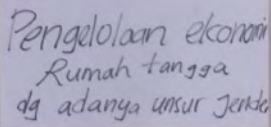 Pengelolaan ekonomi
Rumah tangga
dg adanya unsur